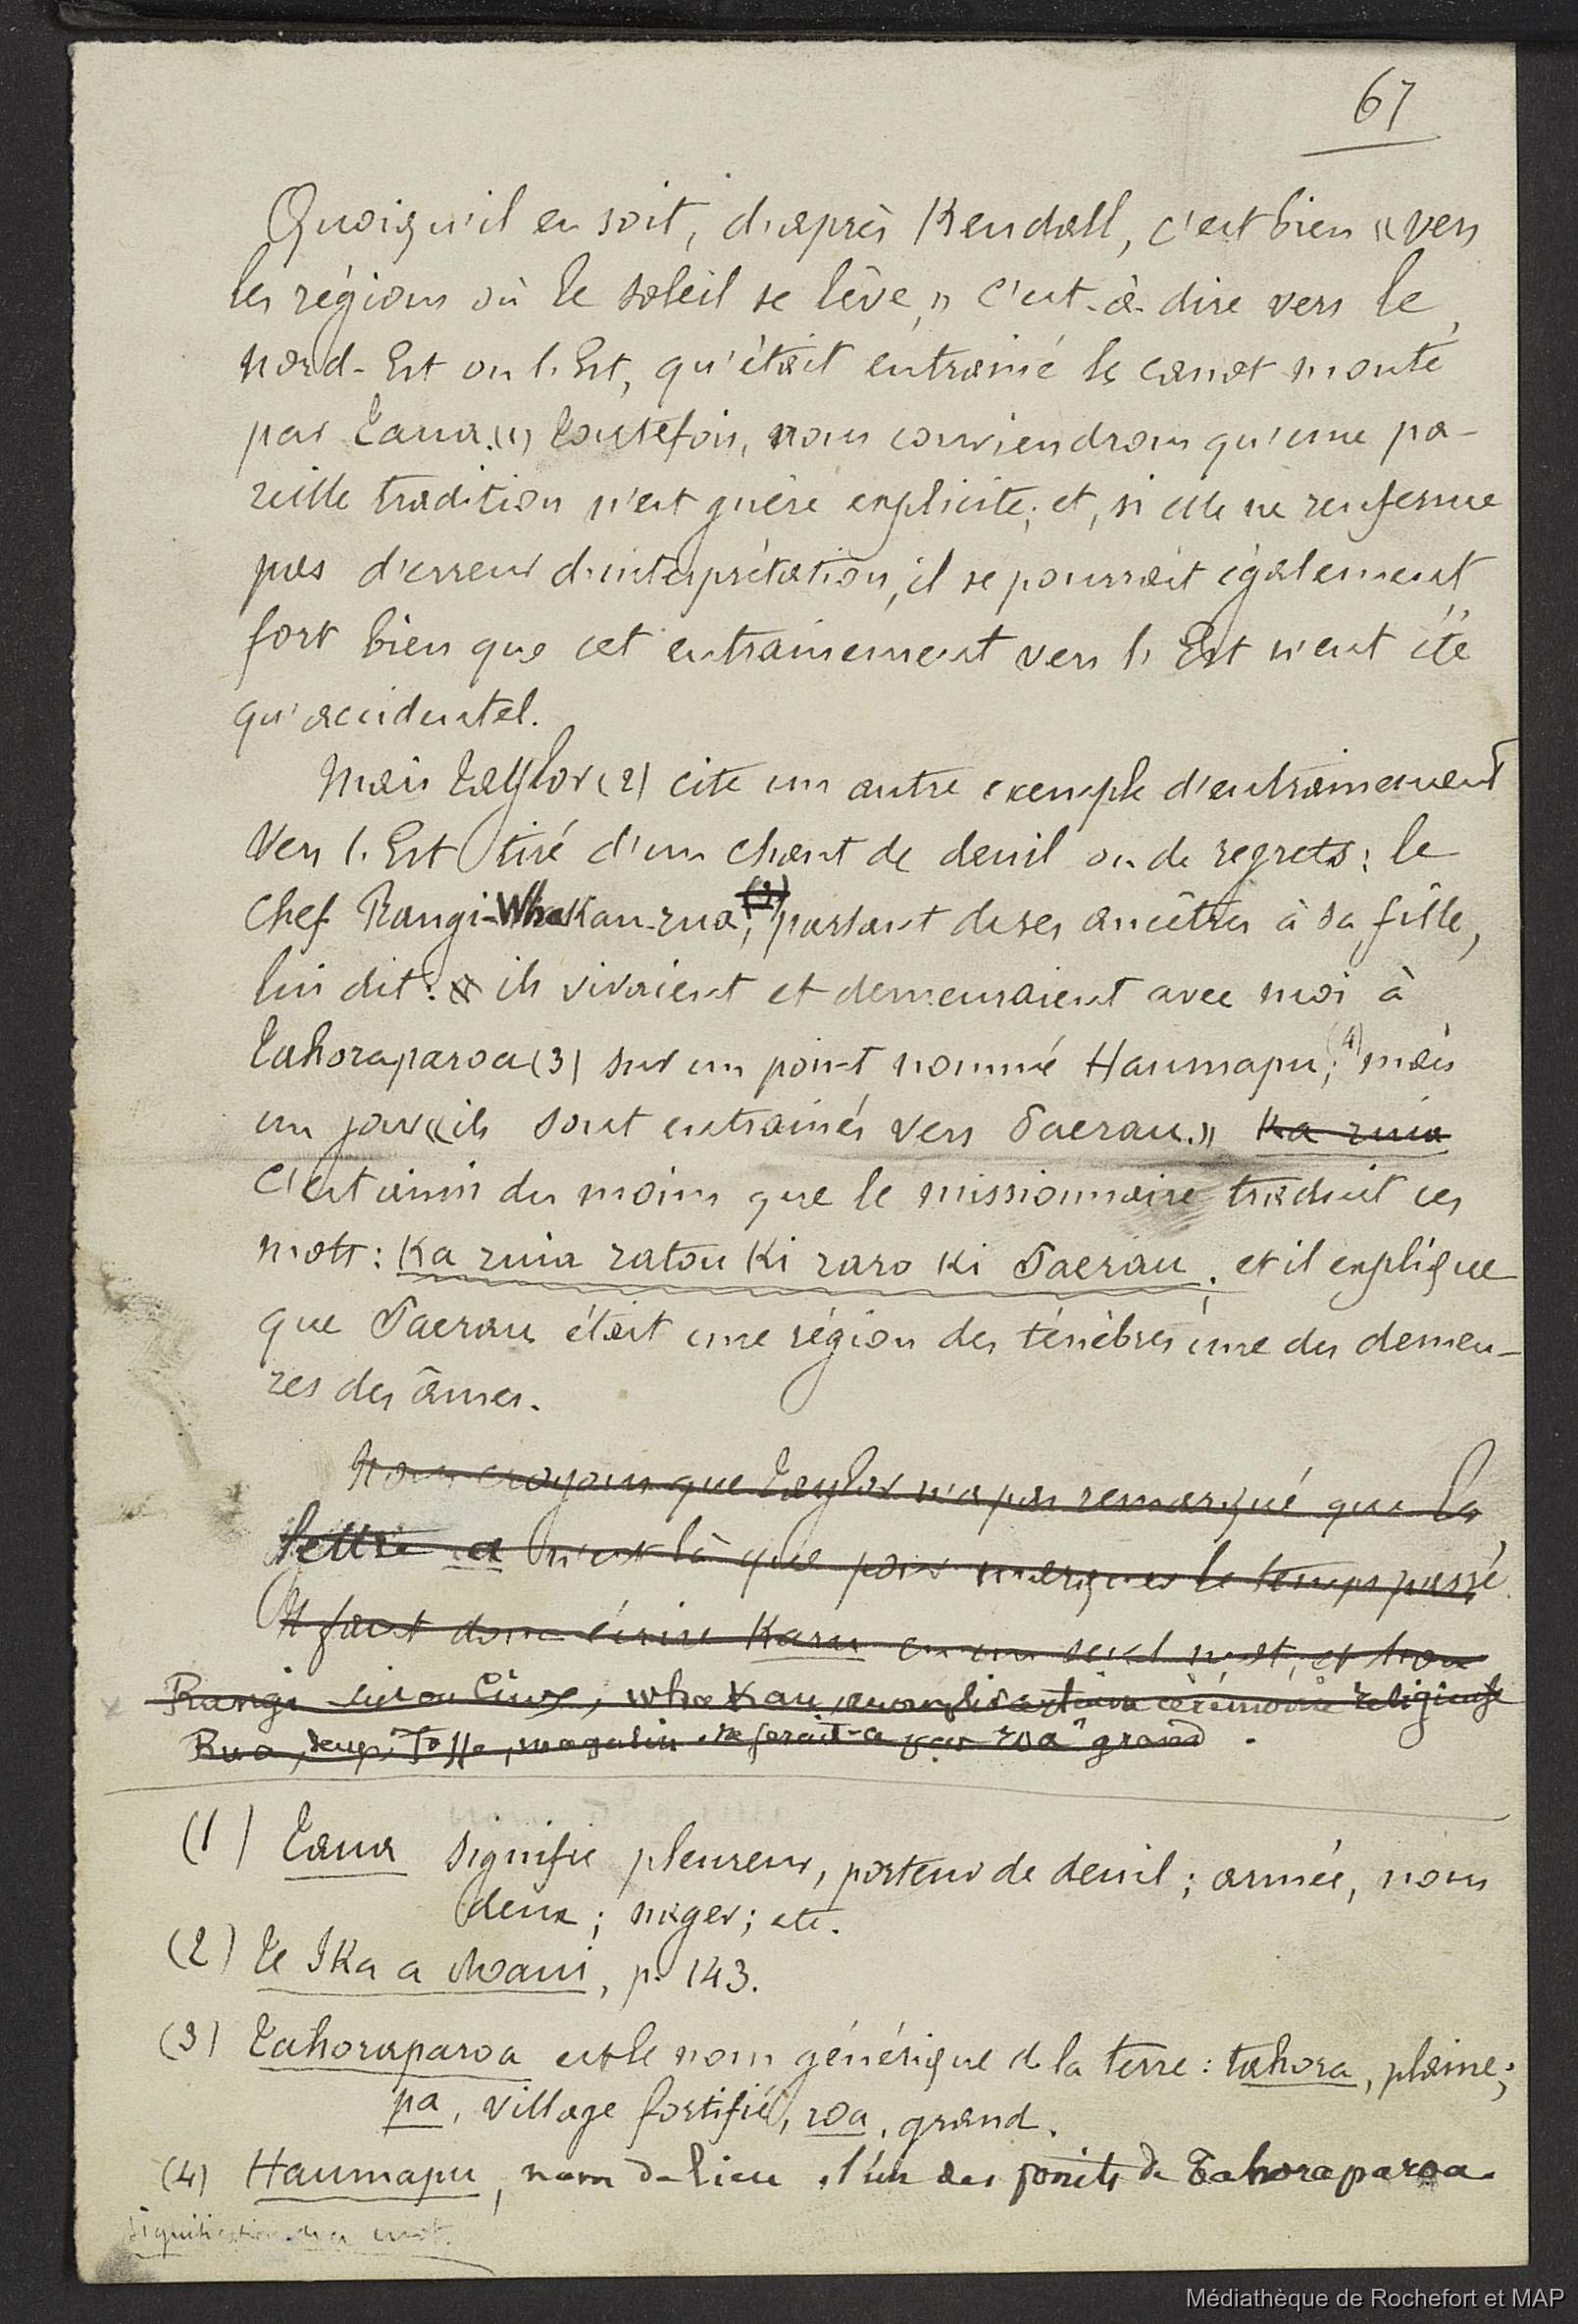 67
Quoiqu'il en soit, d'après Kendall, c'est bien « vers
les régions où le soleil se lève, » c'est-à-dire vers le
nord-Est ou l'Est, qu'était entrainé le canot monté
par Taua.(1) Toutefois, nous conviendrons qu'une pa-
reille tradition n'est guère explicite; et, si elle ne renferme
pas d'erreur d'interprétation, il se pourrait également
fort bien que cet entrainement vers l'Est n'eut été
qu'accidentel.
Mais Taylor (2) cite un autre exemple d'entrainement
vers l'Est tiré d'un chant de deuil ou de regrets: le
chef Rangi-Whakau-rua, (3) parlant de ses ancêtres à sa fille,
lui dit: « ils vivaient et demeuraient avec moi à
Tahoraparoa (3) sur un point nommé Haumapu; (4) mais
un jour « ils sont entrainés vers Taerau. » Ka ruia
C'est ainsi du moins que le missionnaire traduit ces
mots: Ka ruia ratou ki raro ki Taerau. et il explique
que Taerau était une région des ténèbres une des demeu-
res des âmes.
Nous croyons que Taylor n'a pas remarqué que la
lettre a n'est là que pour marquer le temps passé
Il faut donc écrire Karu en un seul mot, et non
Rangi ciel ou cieux, whakau, accomplir certaine cérémonie religieuse
Rua, deux, fosse, magasin ne serait-ce pas "roa" grand.
(1) Taua signifie pleureur, porteur de deuil; armée, nous
deux; nager; etc.
(2) Te Ika a Maui, p. 143.
(3) Tahoraparoa est le nom générique de la terre: tahora, plaine;
pa, village fortifié, roa, grand.
(4) Haumapu, nom de lieu, l'un des points de Tahoraparoa.
signification du mot.
Médiathèque de Rochefort et MAP